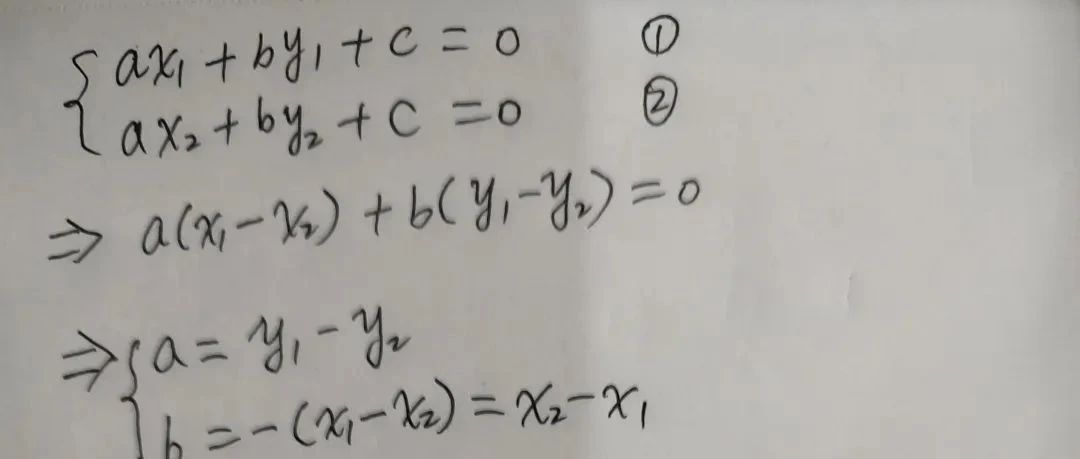 { ax₁ + by₁ + c = 0 ①
ax₂ + by₂ + c = 0 ②
⇒ a(x₁ - x₂) + b(y₁ - y₂) = 0
⇒ { a = y₁ - y₂
b = -(x₁ - x₂) = x₂ - x₁